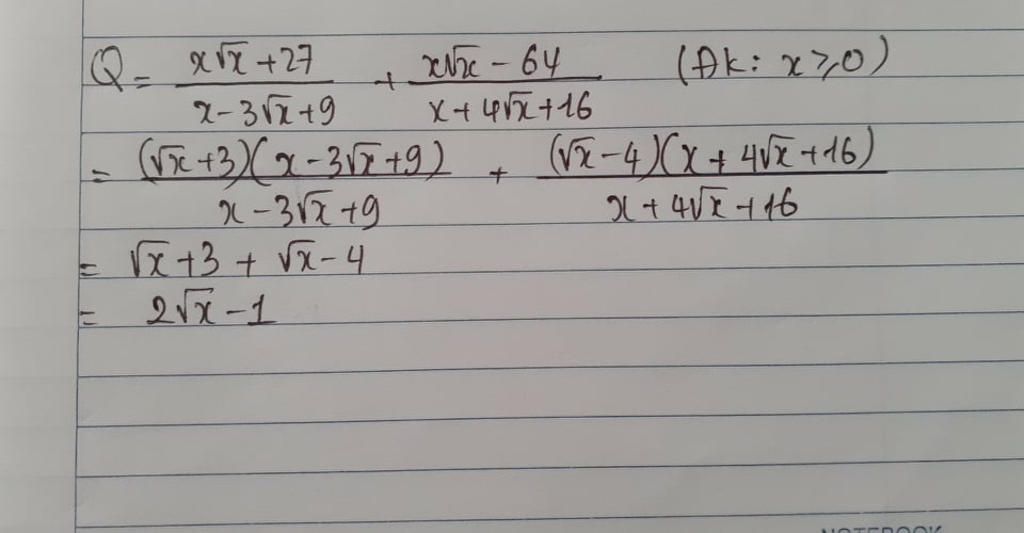 Q = (x√x + 27)/(x - 3√x + 9) + (x√x - 64)/(x + 4√x + 16) (ĐK: x ⩾ 0)
= (√x + 3)(x - 3√x + 9)/(x - 3√x + 9) + (√x - 4)(x + 4√x + 16)/(x + 4√x + 16)
= √x + 3 + √x - 4
= 2√x - 1
NOTEBOOK